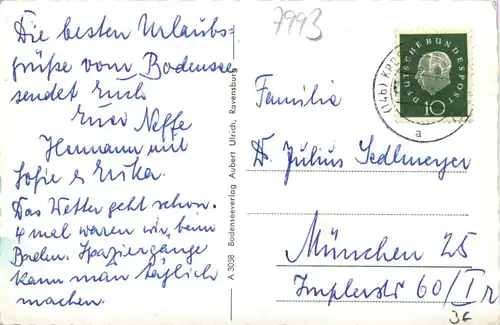 Die besten Urlaubs-
grüße vom Bodensee
sendet Euch
Euer Neffe
Hermann mit
Sofie & Erika.
Das Wetter geht schon.
4 mal waren wir beim
Baden. Spaziergänge
kann man täglich
machen.
A 3058 Bodenseeverlag Aubert Ulrich, Ravensburg
7993
DEUTSCHE BUNDESPOST
10
(14b) KRES
a
Familie
Dr. Julius Sedlmeyer
München 25
Implerstr 60/I r